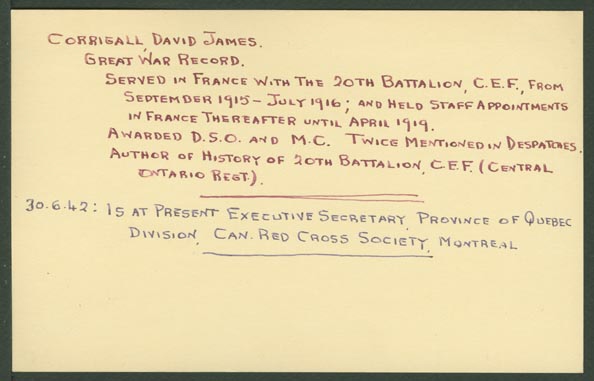 CORRIGALL, DAVID JAMES.
GREAT WAR RECORD.
SERVED IN FRANCE WITH THE 20TH BATTALION, C.E.F., FROM
SEPTEMBER 1915 - JULY 1916; AND HELD STAFF APPOINTMENTS
IN FRANCE THEREAFTER UNTIL APRIL 1919.
AWARDED D.S.O. AND M.C. TWICE MENTIONED IN DESPATCHES.
AUTHOR OF HISTORY OF 20TH BATTALION, C.E.F. (CENTRAL
ONTARIO REGT.).
30.6.42: IS AT PRESENT EXECUTIVE SECRETARY, PROVINCE OF QUEBEC
DIVISION, CAN. RED CROSS SOCIETY, MONTREAL